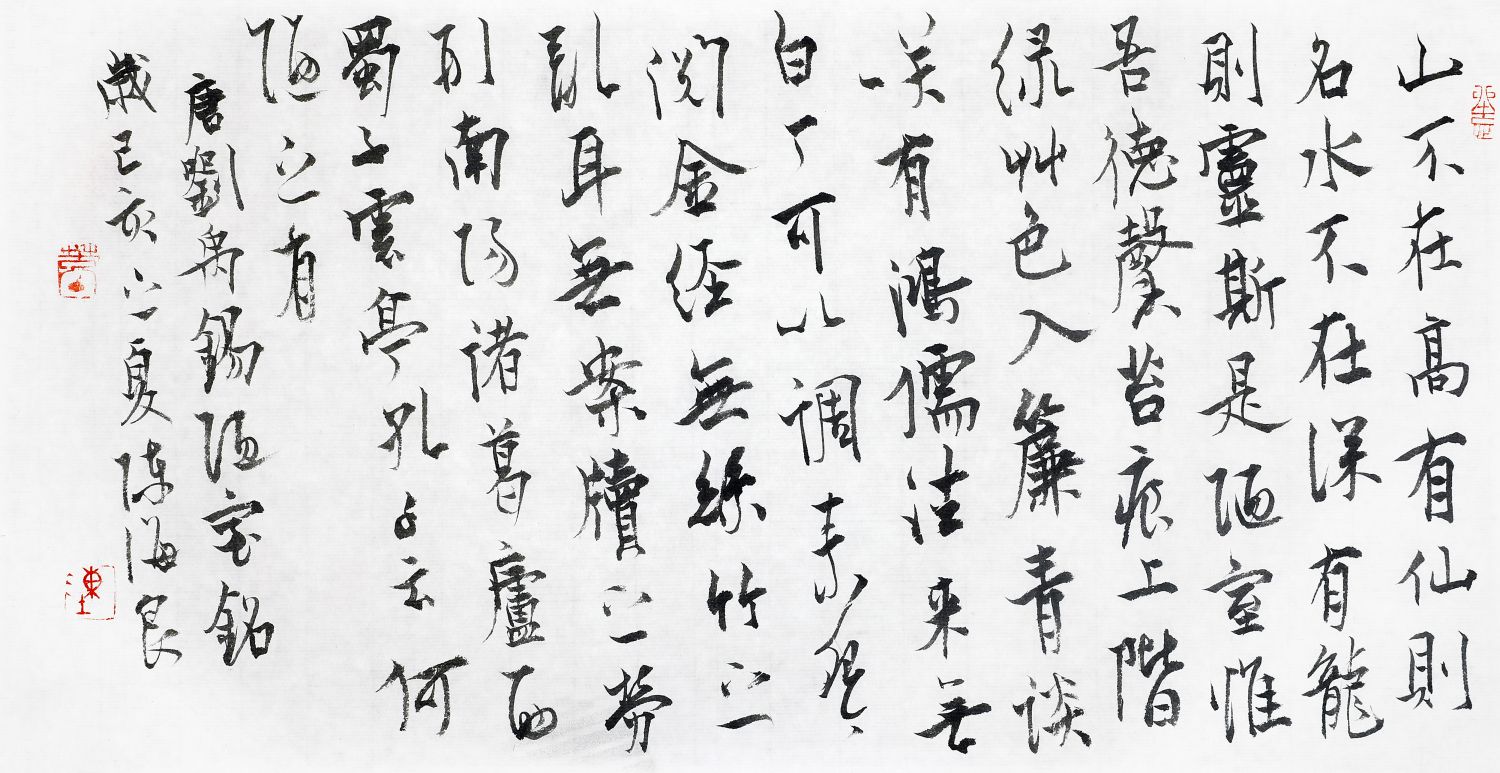 山不在高有仙則
名水不在深有龍
則靈斯是陋室惟
吾德馨苔痕上階
绿艸色入簾青談
咲有鴻儒往来無
白丁可以調素琴
閲金経無絲竹之
亂耳無案牘之勞
形南陽諸葛廬西
蜀子雲亭孔子云何
陋之有
唐劉禹錫陋室銘
歲己亥之夏陳海良